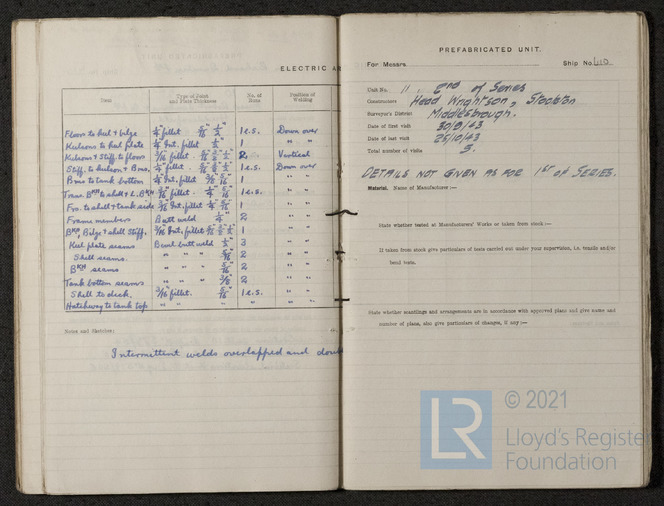 ELECTRIC A
Item Type of Joint and Plate Thickness No. of Runs Position of Welding
Floors to keel & bilge ¼" fillet. 5/16" ½" 1 e.s. Down over
Keelsons to keel plate ¼" Int. fillet ½" 1 " "
Kelsons & Stiff. to floors 3/16 fillet. 2. Vertical
Stiff. to keelson & Bms. ¼" fillet. 1 e.s. Down over
Bms to tank bottom ¼" Int. fillet 1 " "
Trans. BKH to shell & L.BKH fillet. 1 e.s. " "
Frs. to shell & tank side 3/16" Int. fillet 1 " "
Frame members Butt weld ¼" 2 " "
BKH Bilge & shell stiff. 3/16 Int. fillet 1 " "
Keel plate seams Bevel butt weld ½" 3 " "
Shell seams. " " " 5/16" 2 " "
BKH seams " " " 5/16" 2 " "
Tank bottom seams " " " 3/8" 2 " "
Shell to deck. 3/16 fillet. 5/16" 1 e.s. " "
Hatchway to tank top " " " " " "
Notes and Sketches:
Intermittent welds overlapped and doub
PREFABRICATED UNIT.
For Messrs. Ship No. 410
Unit No. 11. 2nd of Series
Constructors Head Wrightson, Stockton
Surveyor's District Middlesbrough.
Date of first visit 30/9/43
Date of last visit 25/10/43
Total number of visits 5.
DETAILS NOT GIVEN AS FOR 1ST OF SERIES.
Material. Name of Manufacturer :—
State whether tested at Manufacturers' Works or taken from stock :—
If taken from stock give particulars of tests carried out under your supervision, i.e. tensile and/or
bend tests.
State whether scantlings and arrangements are in accordance with approved plans and give names and
number of plans, also give particulars of changes, if any :—
© 2021
LR
Lloyd's Register
Foundation